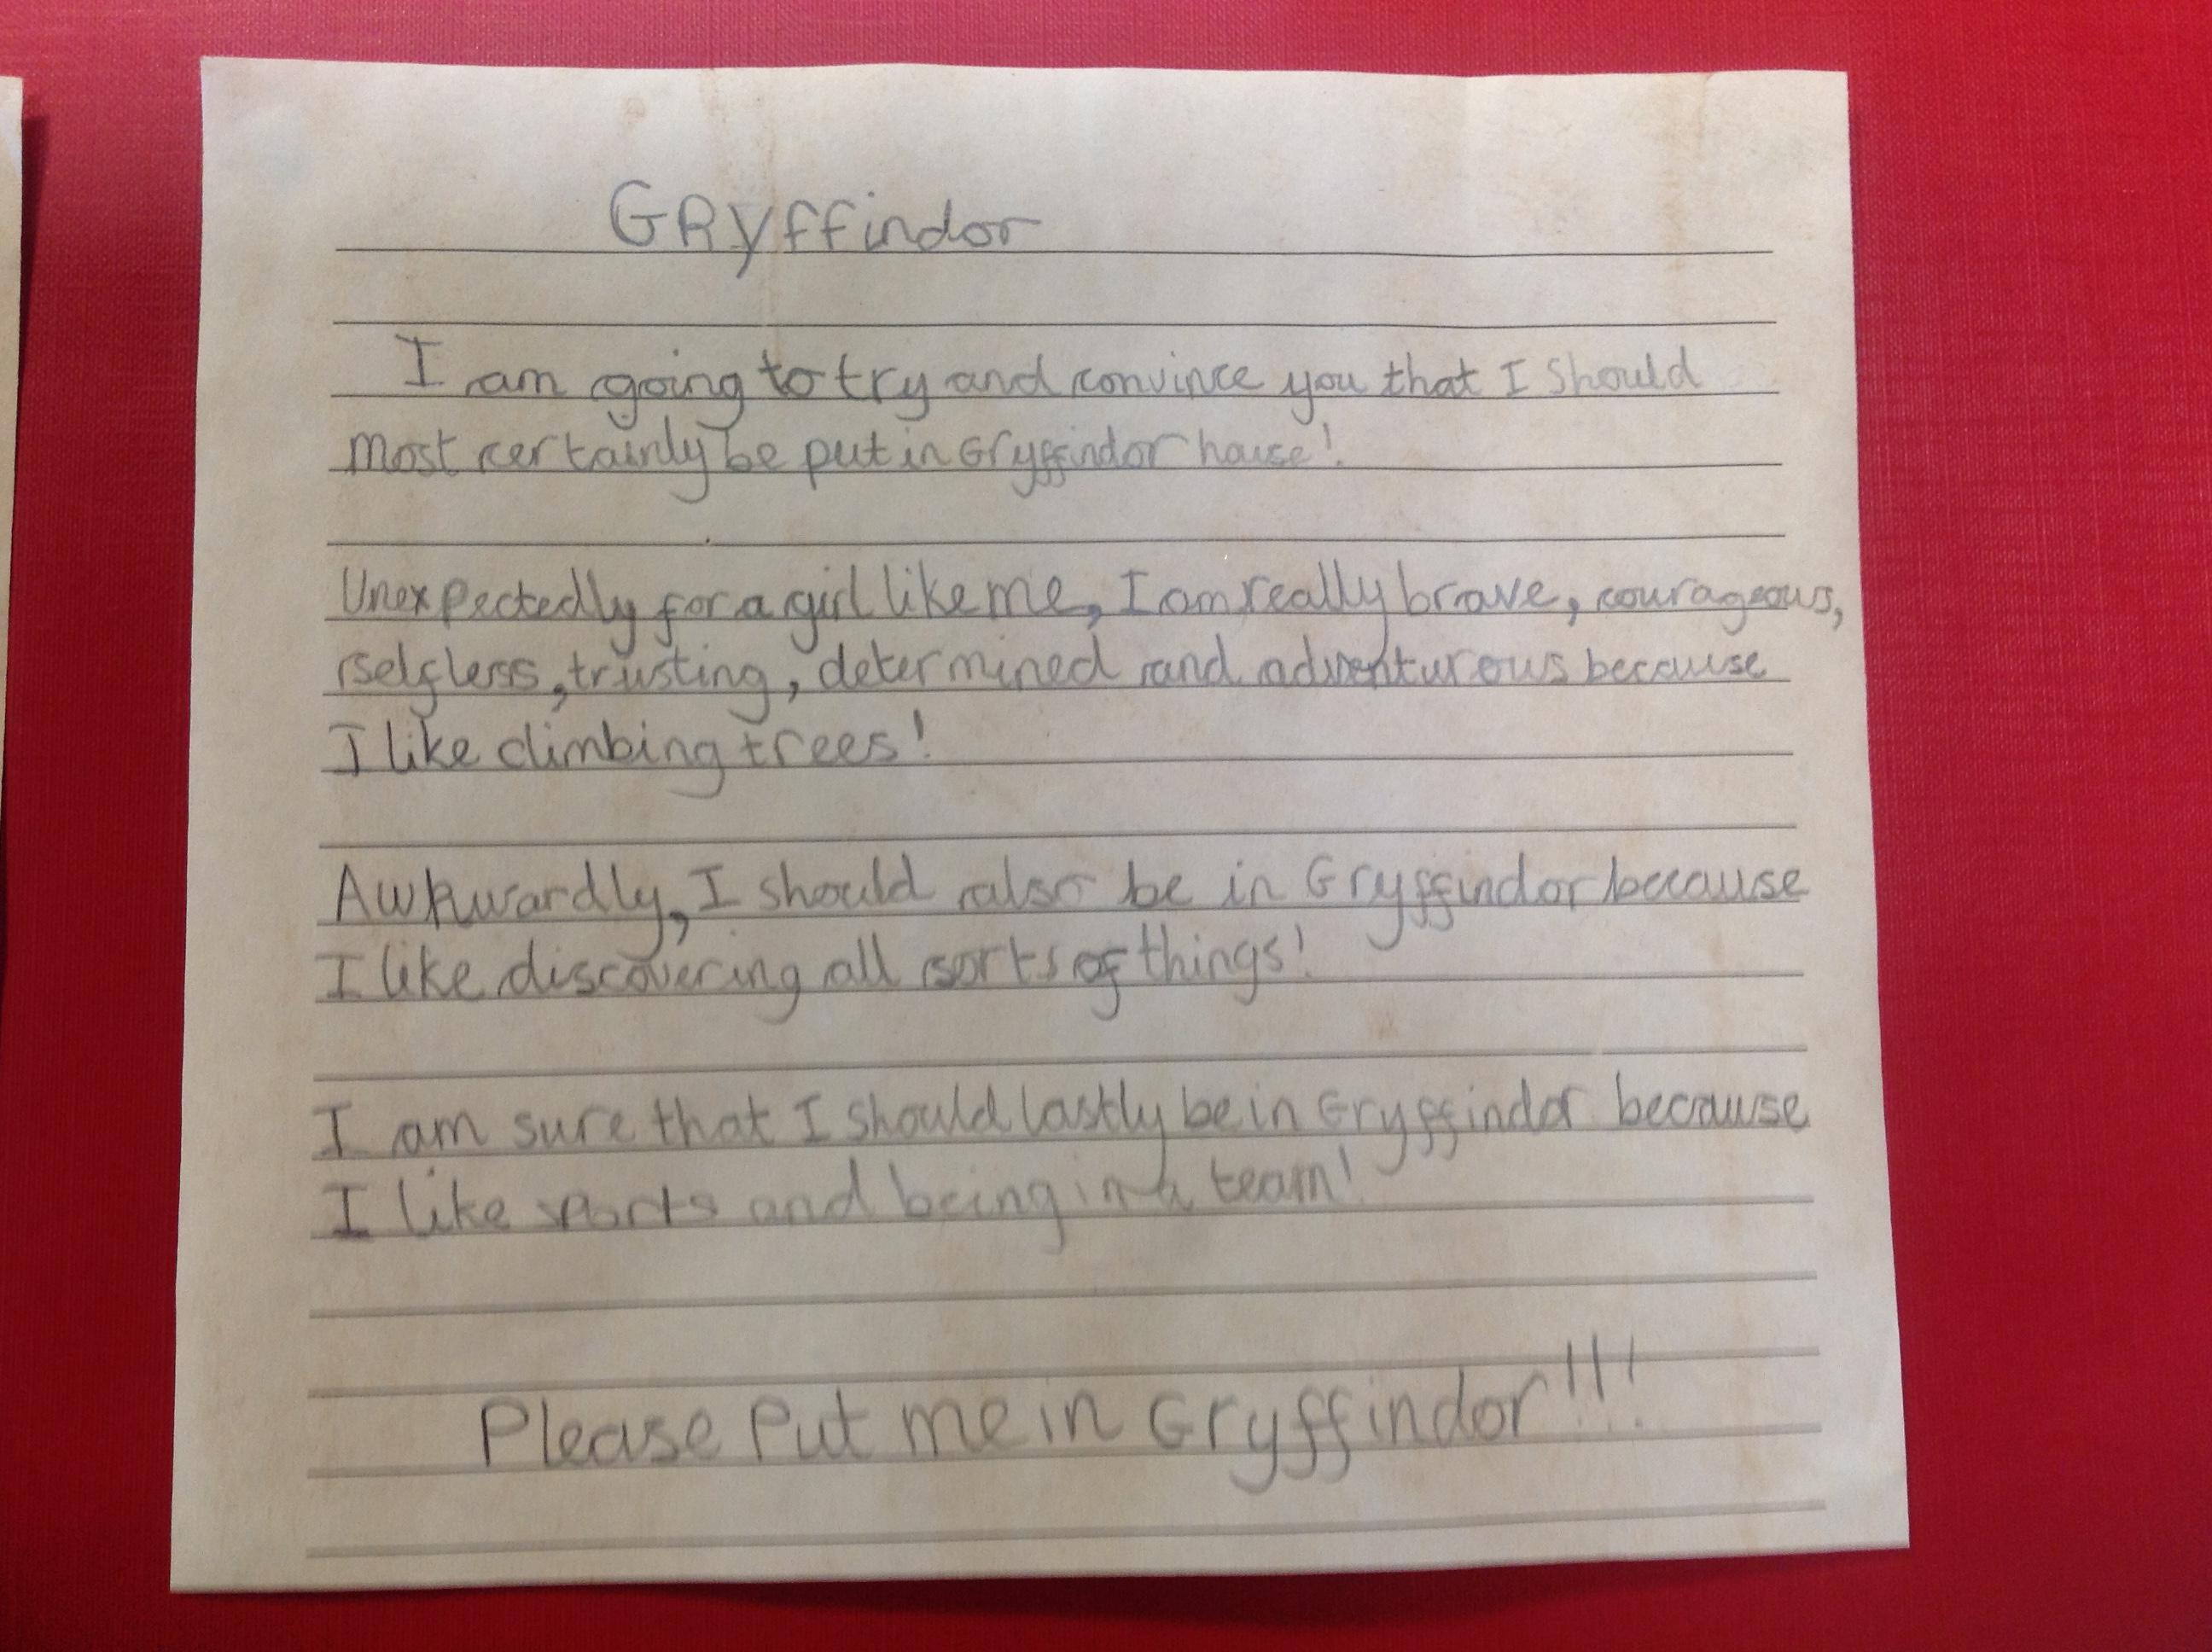 GRyffindor
I am going to try and convince you that I Should
most certainly be put in Gryffindor house!
Unexpectedly for a girl like me, I am really brave, courageous,
selfless, trusting, determined and adventurous because
I like climbing trees!
Awkwardly, I should also be in Gryffindor because
I like discovering all sorts of things!
I am sure that I should lastly be in Gryffindor because
I like sports and being in a team!
Please Put me in Gryffindor!!!